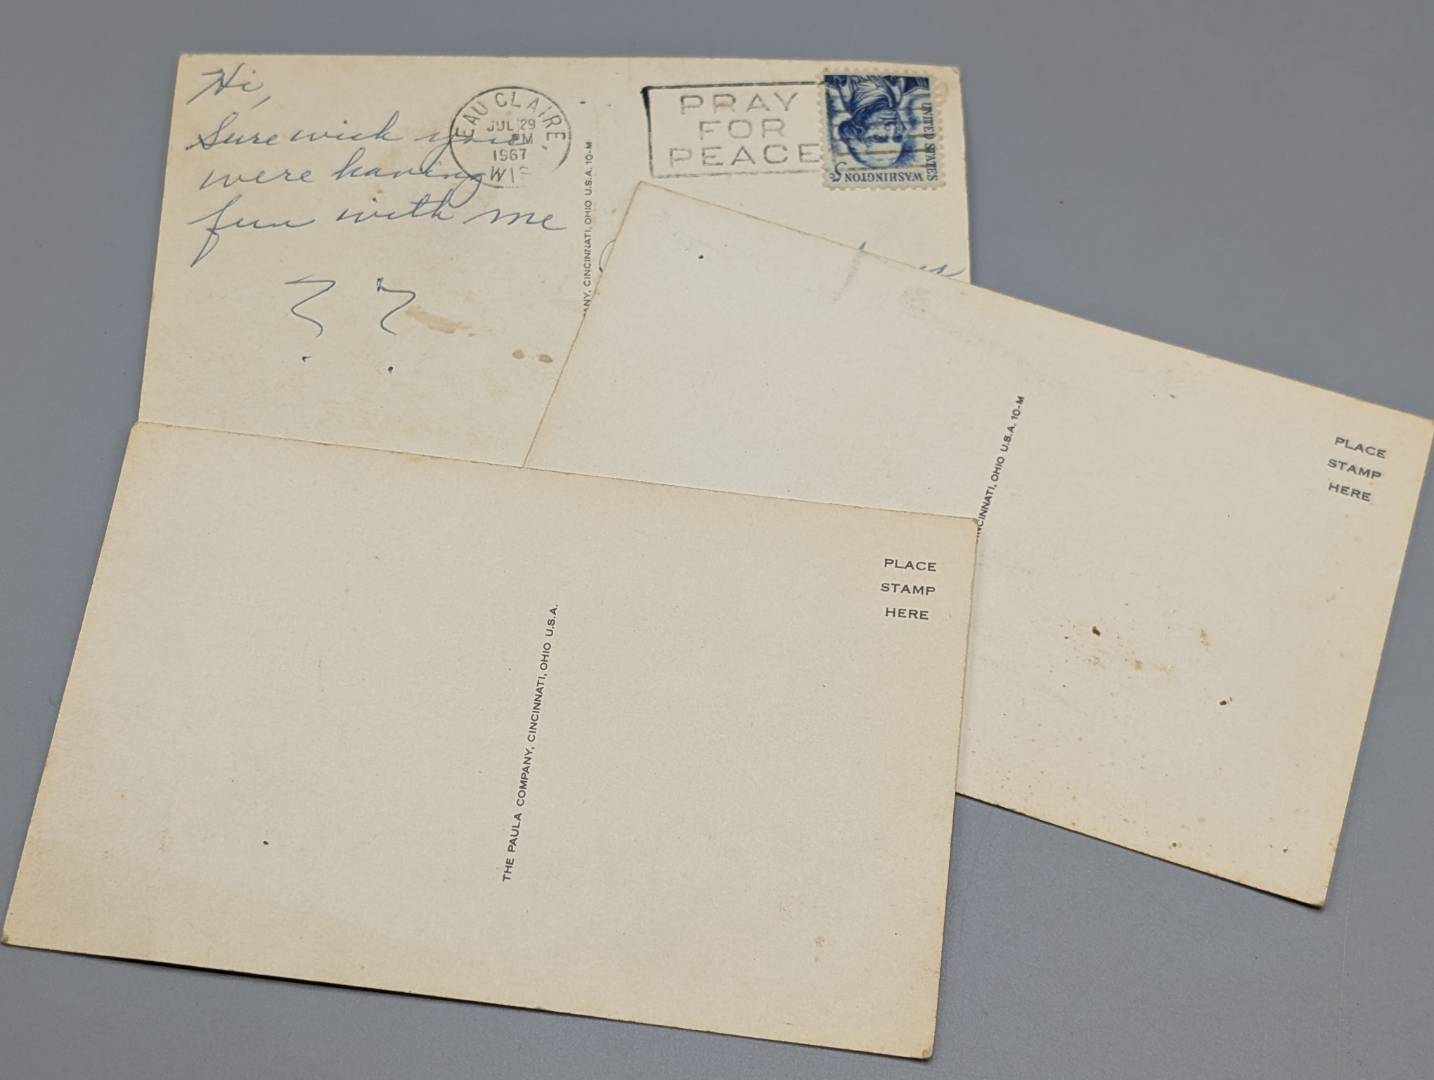 Hi,
Sure wick you
were having
fun with me
? ?
EAU CLAIRE,
JUL 29
PM
1967
WIS
PRAY
FOR
PEACE
UNITED STATES
WASHINGTON
5c
ANY, CINCINNATI, OHIO U.S.A. 10-M
PLACE
STAMP
HERE
CINCINNATI, OHIO U.S.A. 10-M
PLACE
STAMP
HERE
THE PAULA COMPANY, CINCINNATI, OHIO U.S.A.